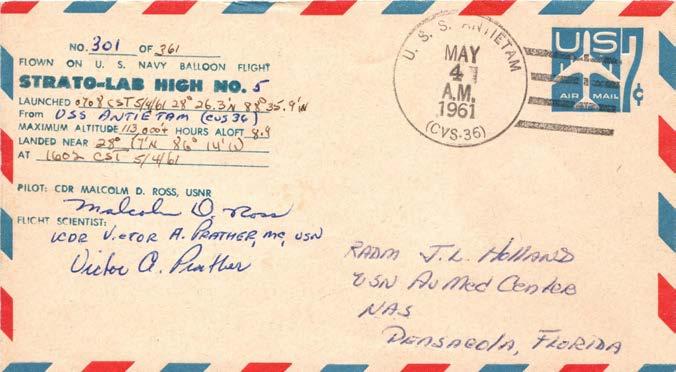 NO. 301 OF 361
FLOWN ON U. S. NAVY BALLOON FLIGHT
STRATO-LAB HIGH NO. 5
LAUNCHED 0708 CST 5/4/61 28° 26.3'N 88° 35.9'W
From USS ANTIETAM (CVS 36)
MAXIMUM ALTITUDE 113,000+ HOURS ALOFT 8.9
LANDED NEAR 28° 86° 14'
AT 1602 CST 5/4/61
PILOT: CDR MALCOLM D. ROSS, USNR
Malcolm D. Ross
FLIGHT SCIENTIST:
LCDR VICTOR A. PRATHER, MC, USN
Victor A. Prather
U. S. S. ANTIETAM
MAY
4
A.M.
1961
(CVS-36)
US
7¢
AIR MAIL
RADM J. L. HOLLAND
USN Av Med Center
NAS
PENSACOLA, FLORIDA